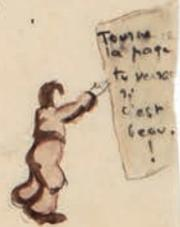 Tourne
la page
tu verras
si
c'est
beau.
!